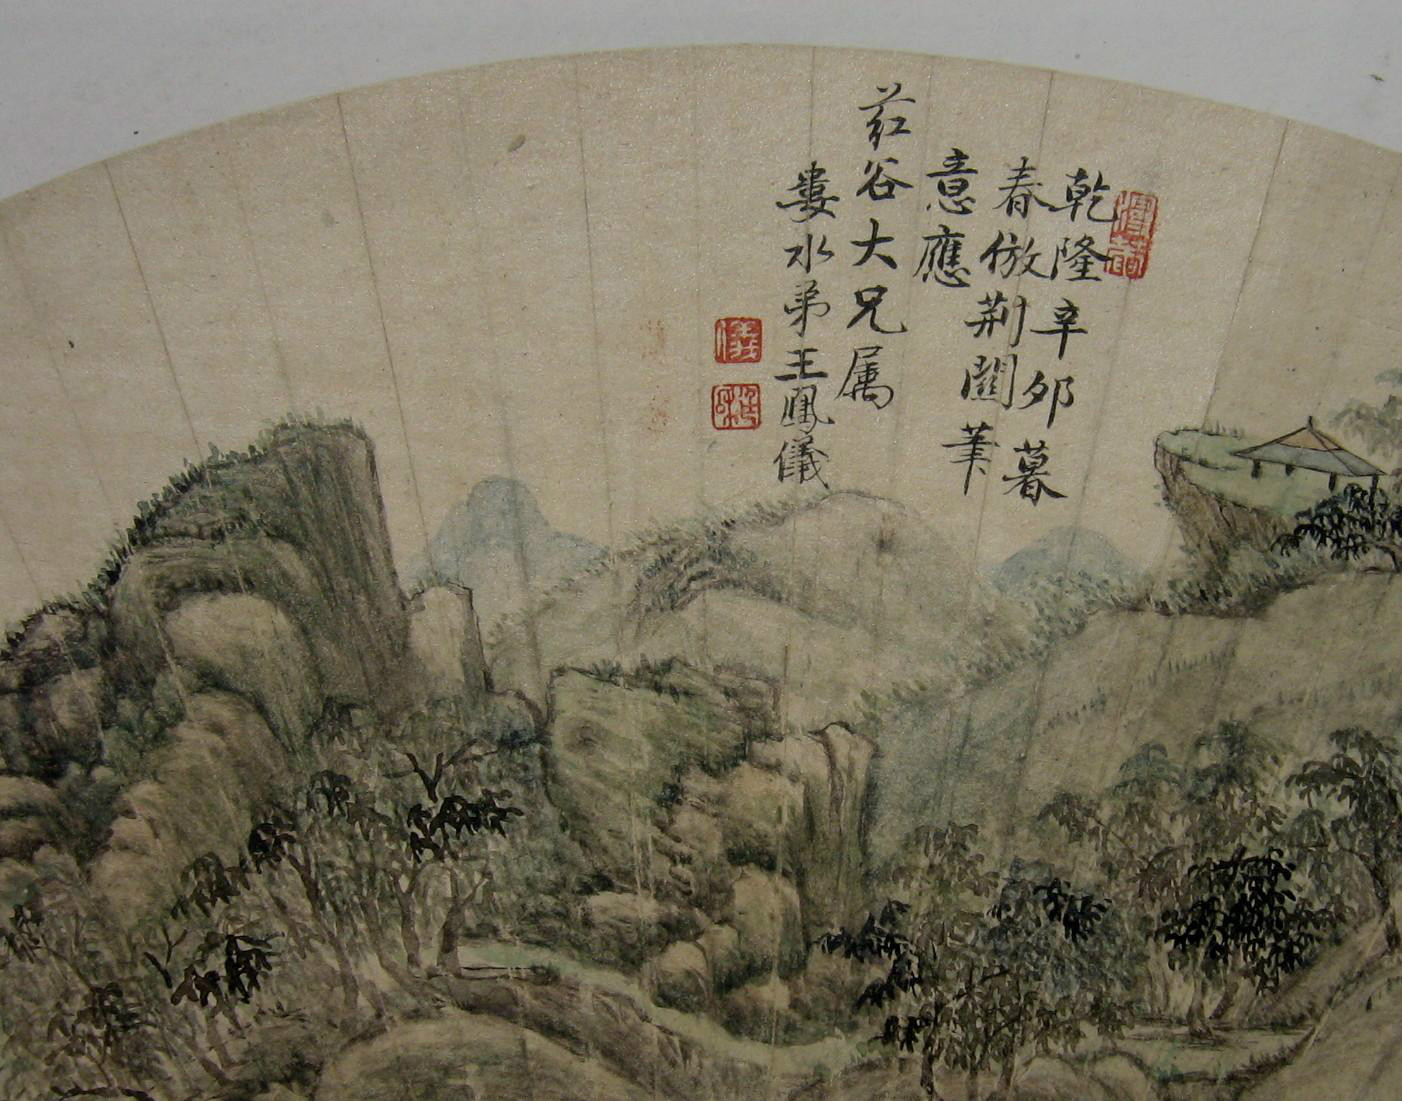 乾隆辛卯暮
春倣荆關筆
意應
葒谷大兄属
婁水弟王鳳儀